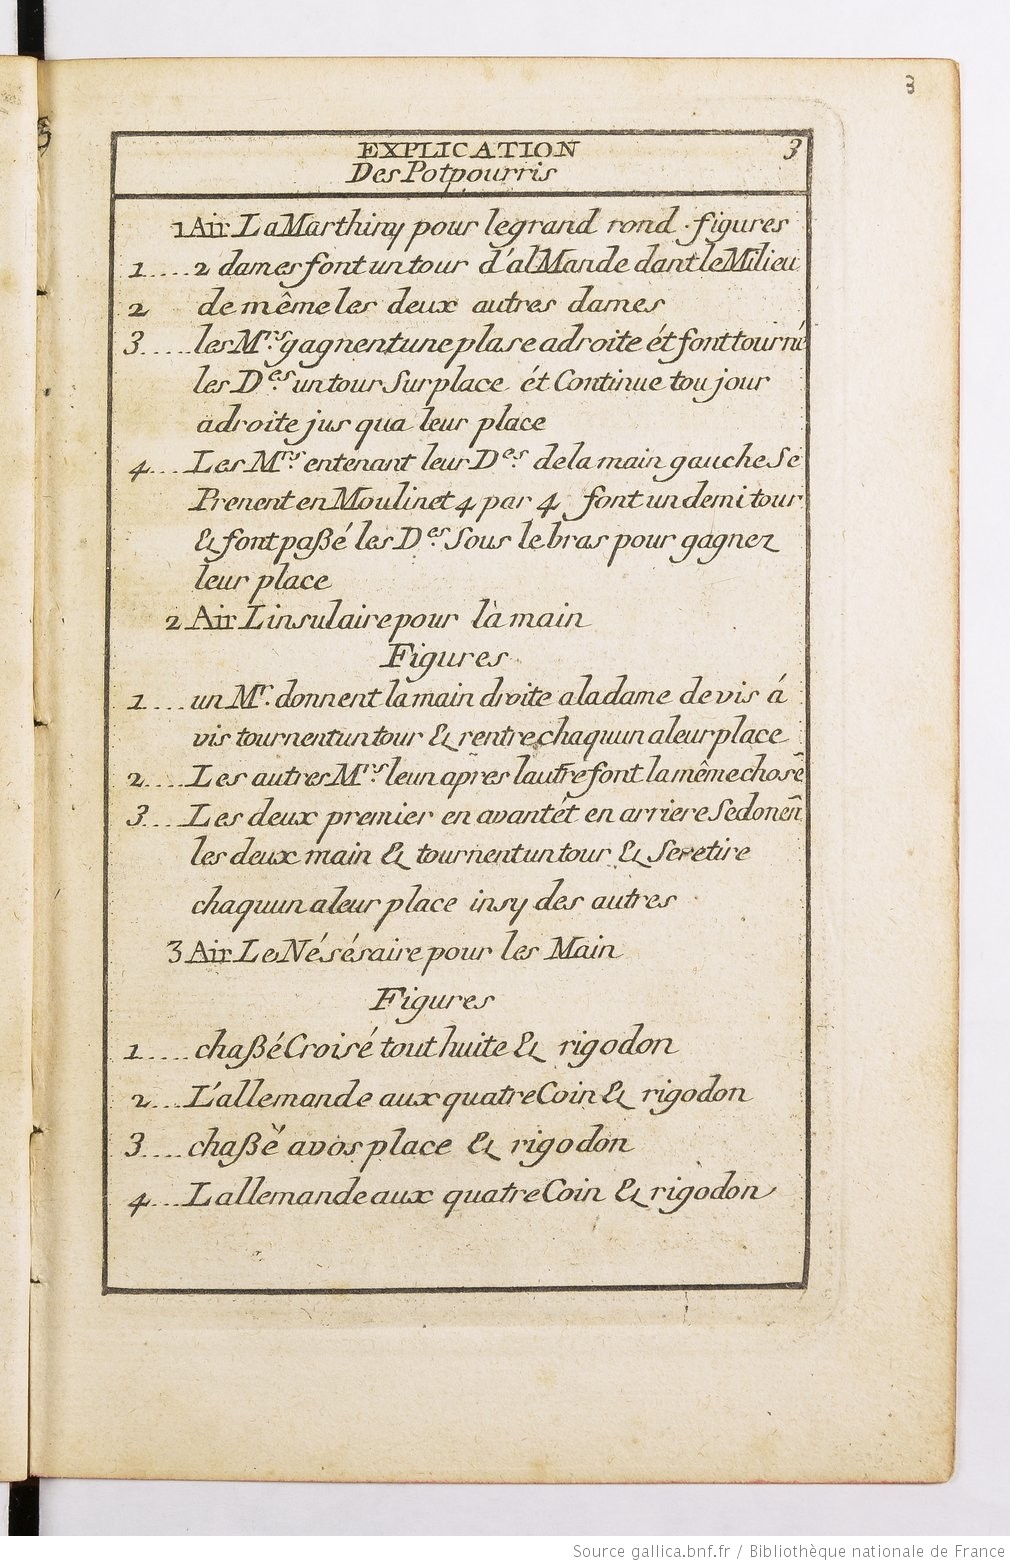 3
EXPLICATION 3
Des Potpourris
1 Air La Marthiny pour le grand rond . figures
1 .... 2 dames font un tour d'alMande dant le Milieu
2 de même les deux autres dames
3 ..... les M.rs gagnent une plase adroite ét font tourné
les D.es un tour Sur place ét Continue toujour
adroite jus qua leur place
4 ... Les M.rs en tenant leur D.es de la main gauche Se
Prenent en Moulinet 4 par 4 font un demi tour
& font paßé les D.es Sous le bras pour gagnez
leur place
2 Air Linsulaire pour là main
Figures
1 .... un M.r donnent la main droite a la dame de vis á
vis tournent un tour & rentre chaquun a leur place
2 .... Les autres M.rs leun apres lautre font la même chose
3 .... Les deux premier en avant ét en arriere Se donen̄
les deux main & tournent un tour & Se retire
chaquun a leur place insy des autres
3 Air Le Nésésaire pour les Main
Figures
1 .... chaßé Croisé tout huite & rigodon
2 ... L'allemande aux quatre Coin & rigodon
3 .... chaßě avos place & rigodon
4 ... Lallemande aux quatre Coin & rigodon
Source gallica.bnf.fr / Bibliothèque nationale de France